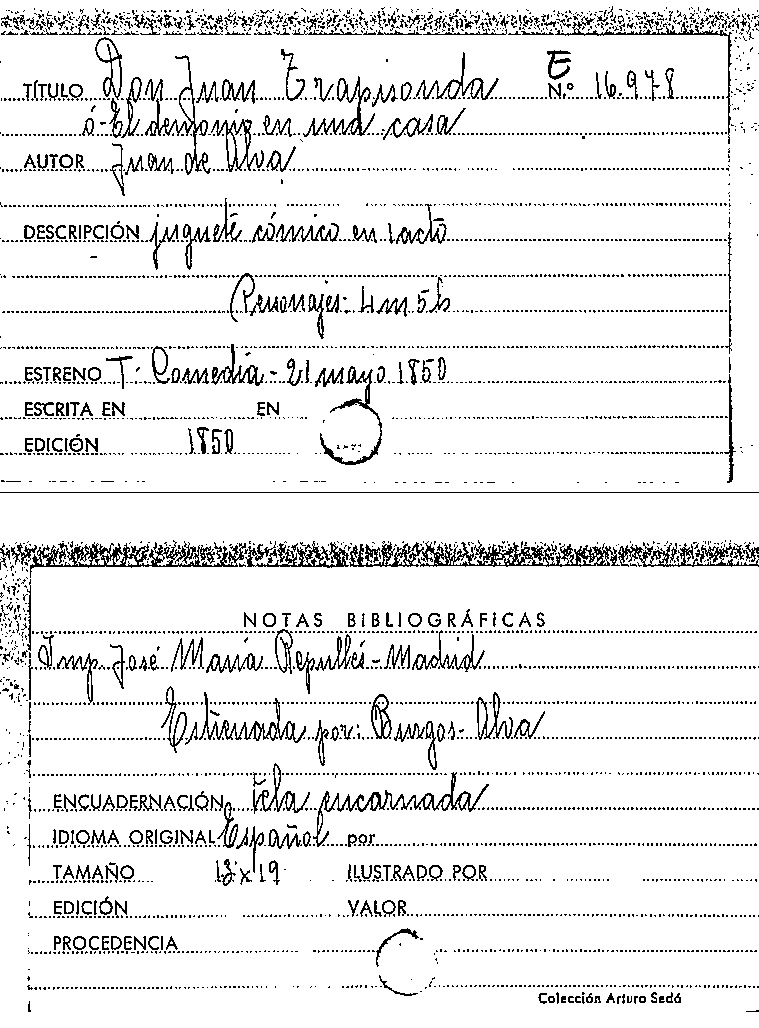 TÍTULO Don Juan Trapisonda E N.º 16.978
ó-El demonio en una casa
AUTOR Juan de Alva
DESCRIPCIÓN juguete cómico en 1 acto
Personajes- 4 m 5 h
ESTRENO T. Comedia - 21 mayo 1850
ESCRITA EN EN
EDICIÓN 1850
NOTAS BIBLIOGRÁFICAS
Imp. José María Repullés - Madrid
Estrenada por: Burgos- Alva
ENCUADERNACIÓN tela encarnada
IDIOMA ORIGINAL Español por
TAMAÑO x 19 ILUSTRADO POR
EDICIÓN VALOR
PROCEDENCIA
Colección Arturo Sedó